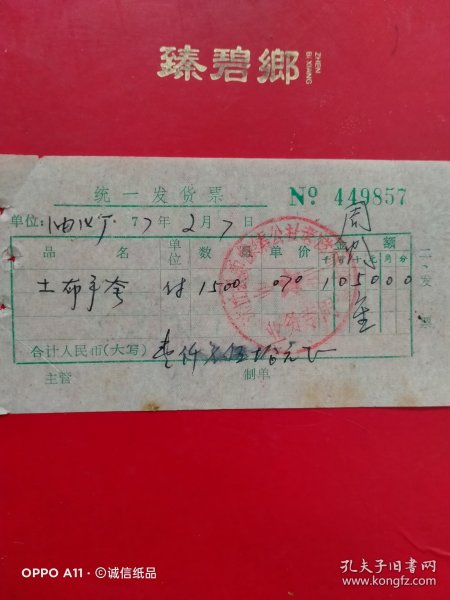 臻碧鄉
ZHEN
BI XIANG
统一发货票 № 449857
单位: 油化厂 77年2月7日
品名 单位 数量 单价 金额
千百十元角分
土布手套 付 1500 070 105000
合计人民币(大写) 壹仟零伍拾元正
主管 制单
二、发票
业务专用
OPPO A11·©诚信纸品
孔夫子旧书网
www.kongfz.com